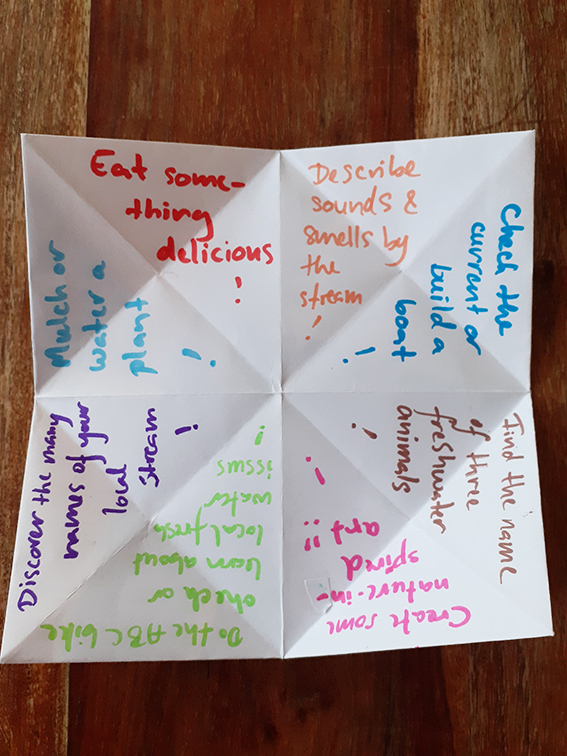 Eat some-
thing
delicious
!
Describe
sounds &
smells by
the
stream
!
Check the
current or
build a
boat
!
Find the name
of three
freshwater
animals
!
Create some
nature-in-
spired
art!!
!
Do the ABC bike
check or
learn about
local fresh
water
issus
!!
Discover the many
names of your
local
stream
!
Mulch or
water a
plant
!